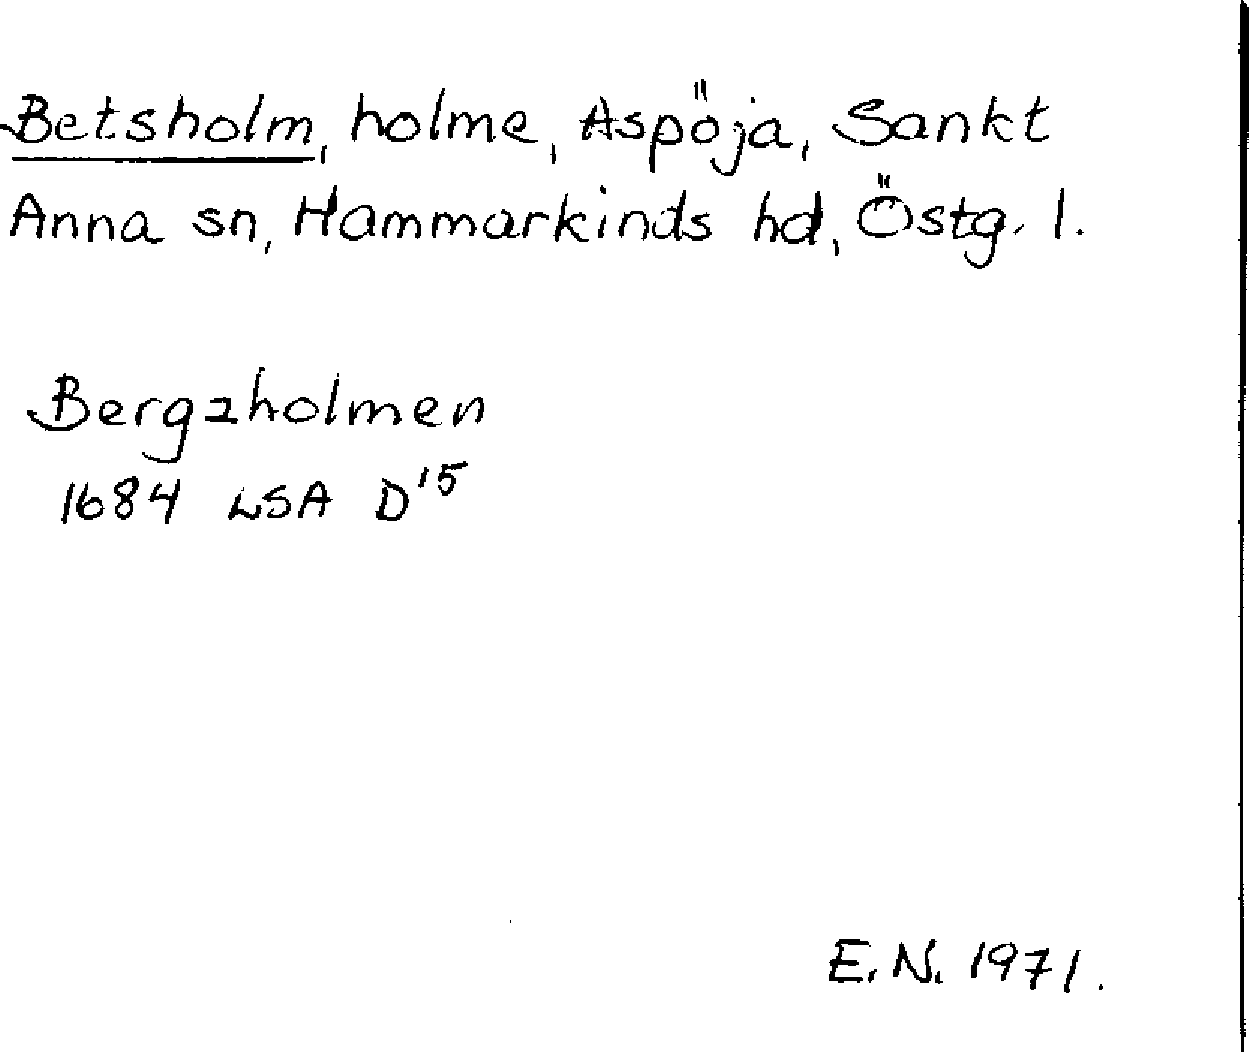 Betsholm, holme, Aspöja, Sankt
Anna sn, Hammarkinds hd, Östg. l.
Bergzholmen
1684 LSA D'5
E.N. 1971.